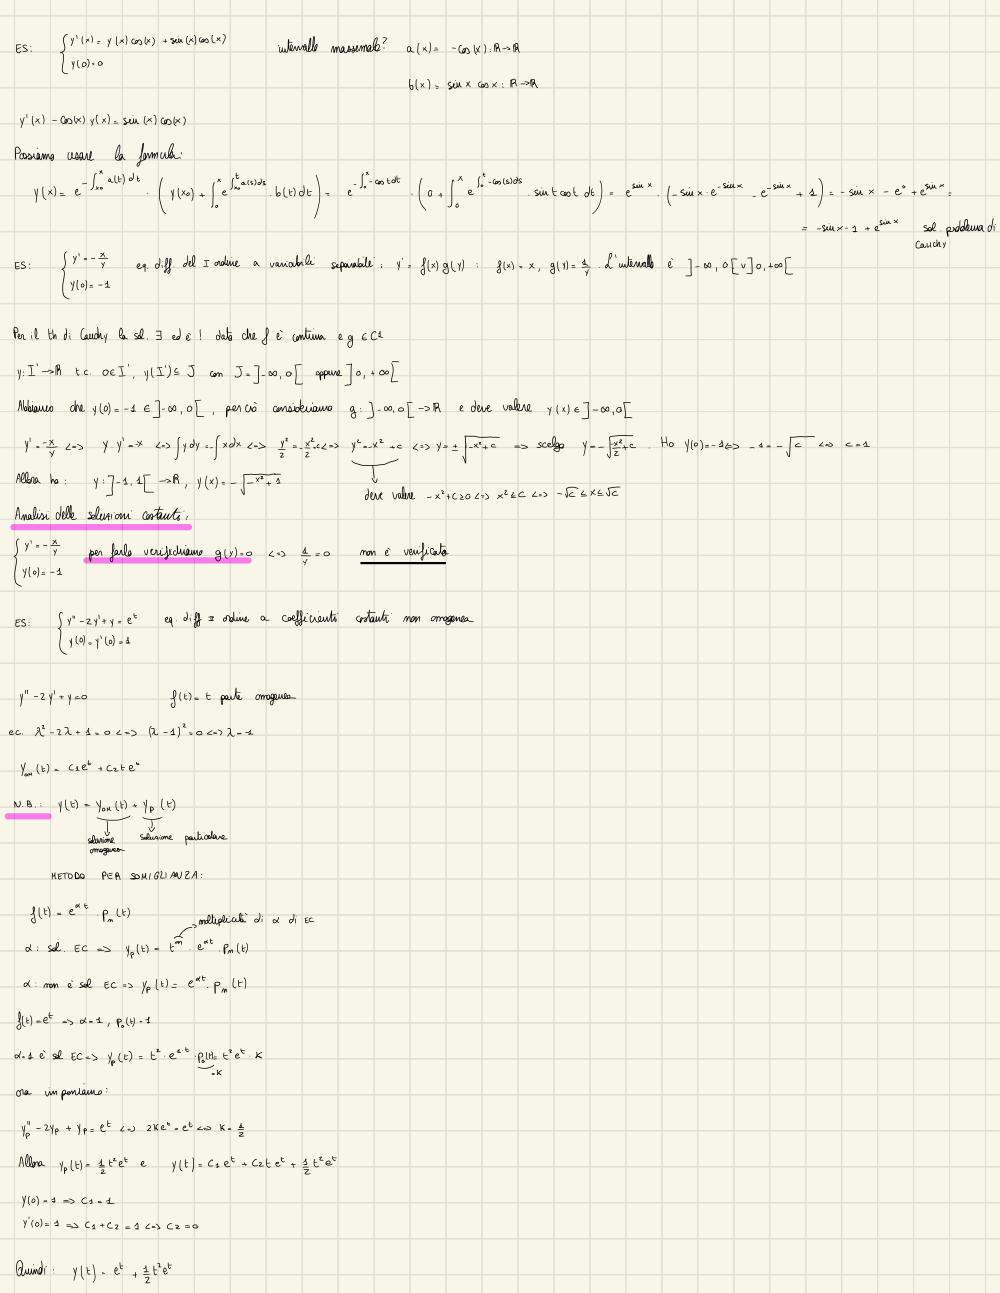 ES: { y'(x) = y(x) cos(x) + sin(x) cos(x) intervallo massimale? a(x) = -cos(x): R→R
y(0)=0
b(x) = sin x cos x: R→R
y'(x) - cos(x) y(x) = sin(x) cos(x)
Possiamo usare la formula:
y(x) = e^{-∫_{x0}^{x} a(t) dt} · ( y(x0) + ∫_0^x e^{∫_{x0}^t a(s) ds} · b(t) dt ) = e^{-∫_0^x -cos t dt} · ( 0 + ∫_0^x e^{∫_0^t -cos(s) ds} · sin t cos t dt ) = e^{sin x} · ( -sin x · e^{-sin x} - e^{-sin x} + 1 ) = -sin x - e^0 + e^{sin x} =
= -sin x - 1 + e^{sin x} sol. problema di
Cauchy
ES: { y' = -x/y eq. diff del I ordine a variabili separabile: y' = f(x) g(y) : f(x) = x, g(y) = 1/y. L'intervallo è ]-∞, 0[ v ]0, +∞[
y(0) = -1
Per il th di Cauchy la sol. ∃ ed è ! dato che f è continua e g ∈ C1
y: I' → R t.c. 0∈I', y(I') ⊆ J con J = ]-∞, 0[ oppure ]0, +∞[
Abbiamo che y(0) = -1 ∈ ]-∞, 0[, perciò consideriamo g: ]-∞, 0[ → R e deve valere y(x) ∈ ]-∞, 0[
y' = -x/y <=> y·y' = -x <=> ∫y dy = -∫x dx <=> y²/2 = -x²/2 + c <=> y² = -x² + c <=> y = ± √(-x²+c) => scelgo y = -√(-x²/2 + c). Ho y(0) = -1 <=> -1 = -√c <=> c = 1
Allora ho: y: ]-1, 1[ → R, y(x) = -√(-x² + 1)
deve valere -x²+c≥0 <=> x² ≤ c <=> -√c ≤ x ≤ √c
Analisi delle soluzioni costanti:
{ y' = -x/y per farlo verifichiamo g(y)=0 <=> 1/y = 0 non è verificata
y(0) = -1
ES: { y'' - 2y' + y = e^t eq. diff II ordine a coefficienti costanti non omogenea
y(0) = y'(0) = 1
y'' - 2y' + y = 0 f(t) = t parte omogenea
ec. λ² - 2λ + 1 = 0 <=> (λ - 1)² = 0 <=> λ = 1
y_OM(t) = C1e^t + C2te^t
N.B.: y(t) = y_OM(t) + y_p(t)
soluzione soluzione particolare
omogenea
METODO PER SOMIGLIANZA:
f(t) = e^{αt} · P_n(t)
molteplicità di α di EC
α: sol. EC => y_p(t) = t^m · e^{αt} · P_n(t)
α: non è sol EC => y_p(t) = e^{αt} · P_n(t)
f(t) = e^t => α=1, P_0(t) = 1
α=1 è sol EC => y_p(t) = t² · e^{1·t} · P_0(t) = t²e^t · K
=K
ora imponiamo:
y_p'' - 2y_p + y_p = e^t <=> 2Ke^t = e^t <=> K = 1/2
Allora y_p(t) = 1/2 t²e^t e y(t) = C1e^t + C2te^t + 1/2 t²e^t
y(0) = 1 => C1 = 1
y'(0) = 1 => C1 + C2 = 1 <=> C2 = 0
Quindi: y(t) = e^t + 1/2 t²e^t